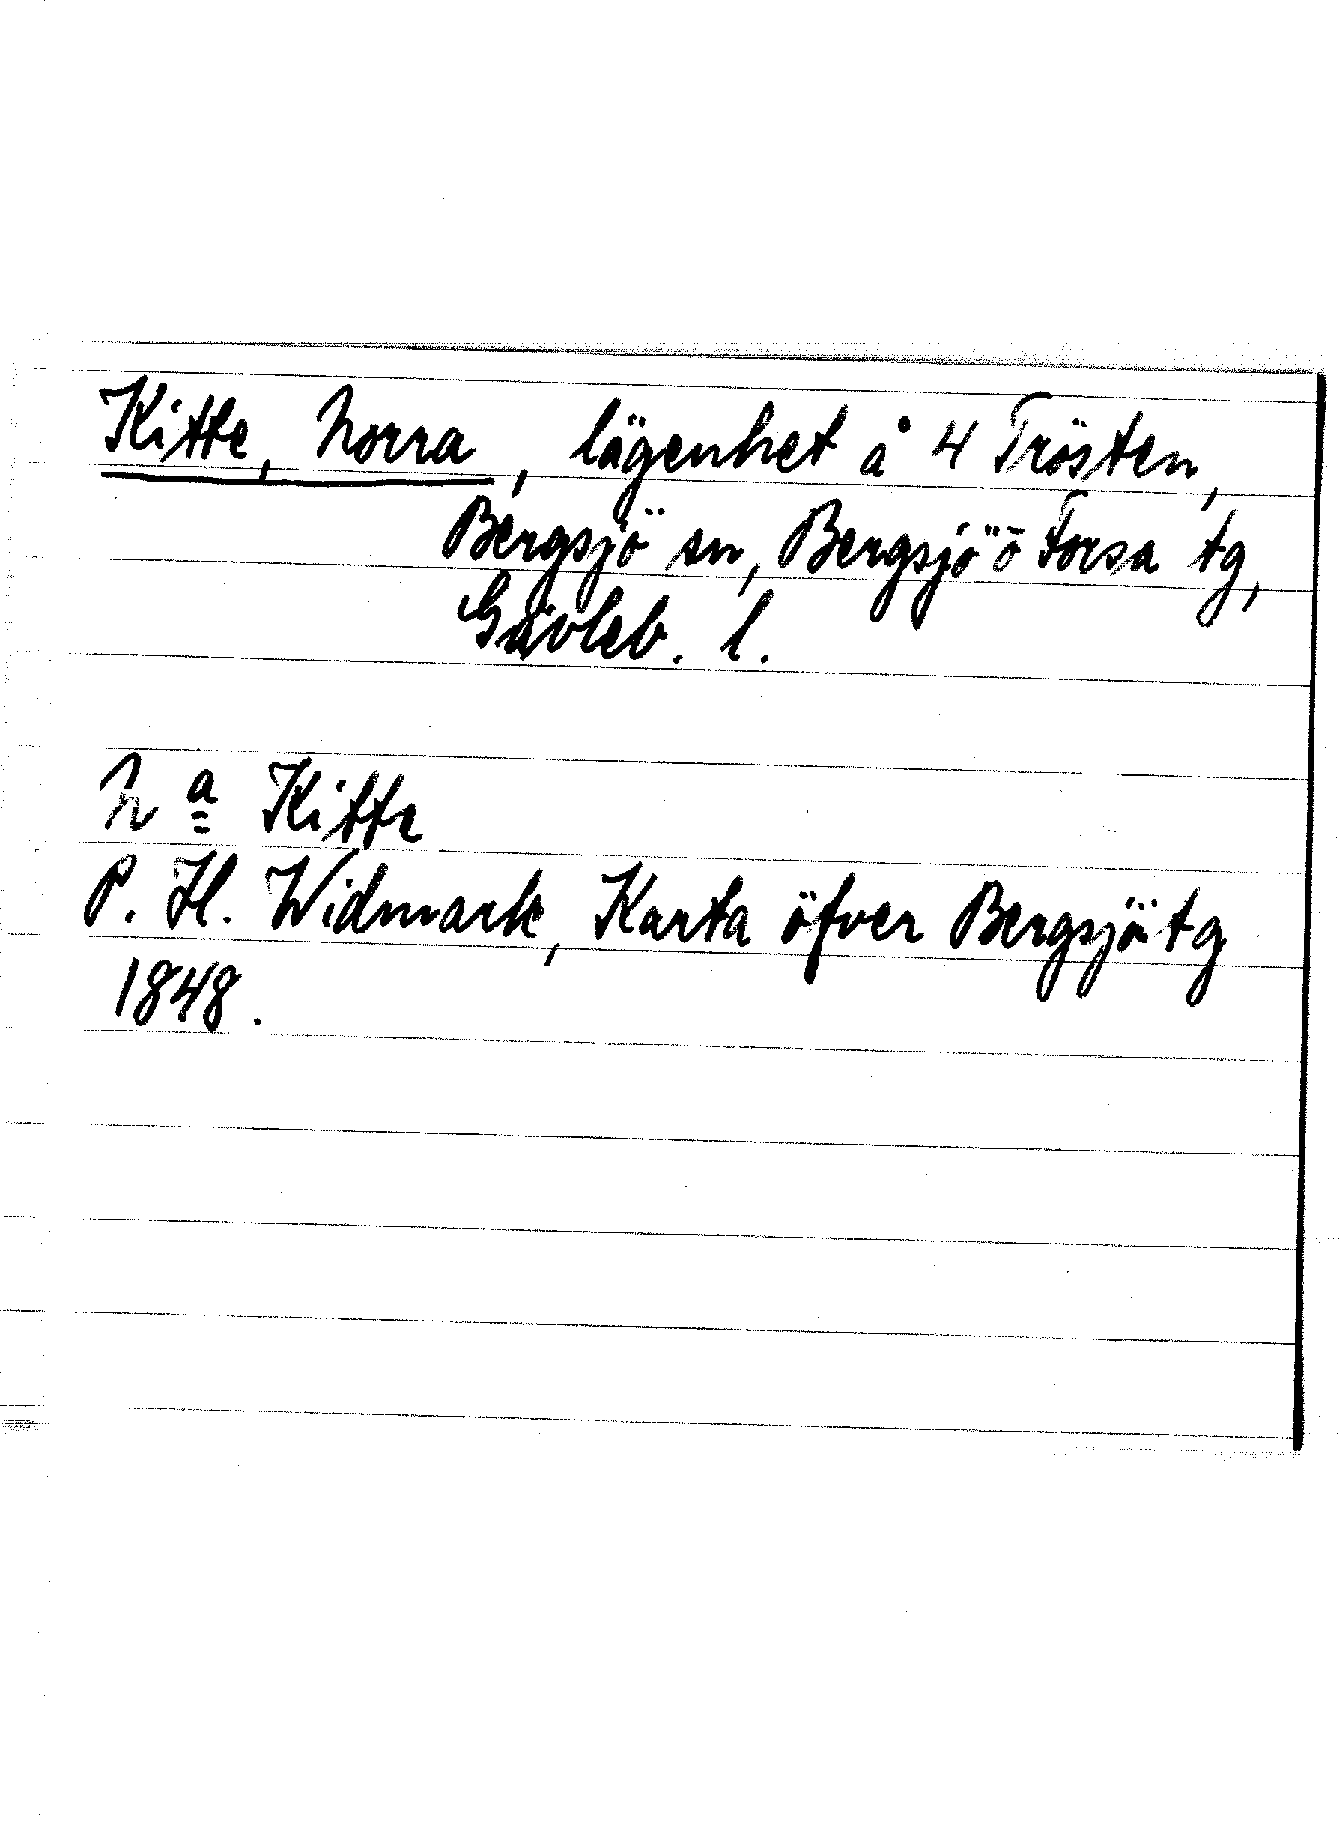 Kitte, Norra, lägenhet å 4 Trösten,
Bergsjö sn, Bergsjö o Forsa tg,
Gävleb. l.
N a Kitte
P. H. Widmark, Karta öfver Bergsjö tg
1848.